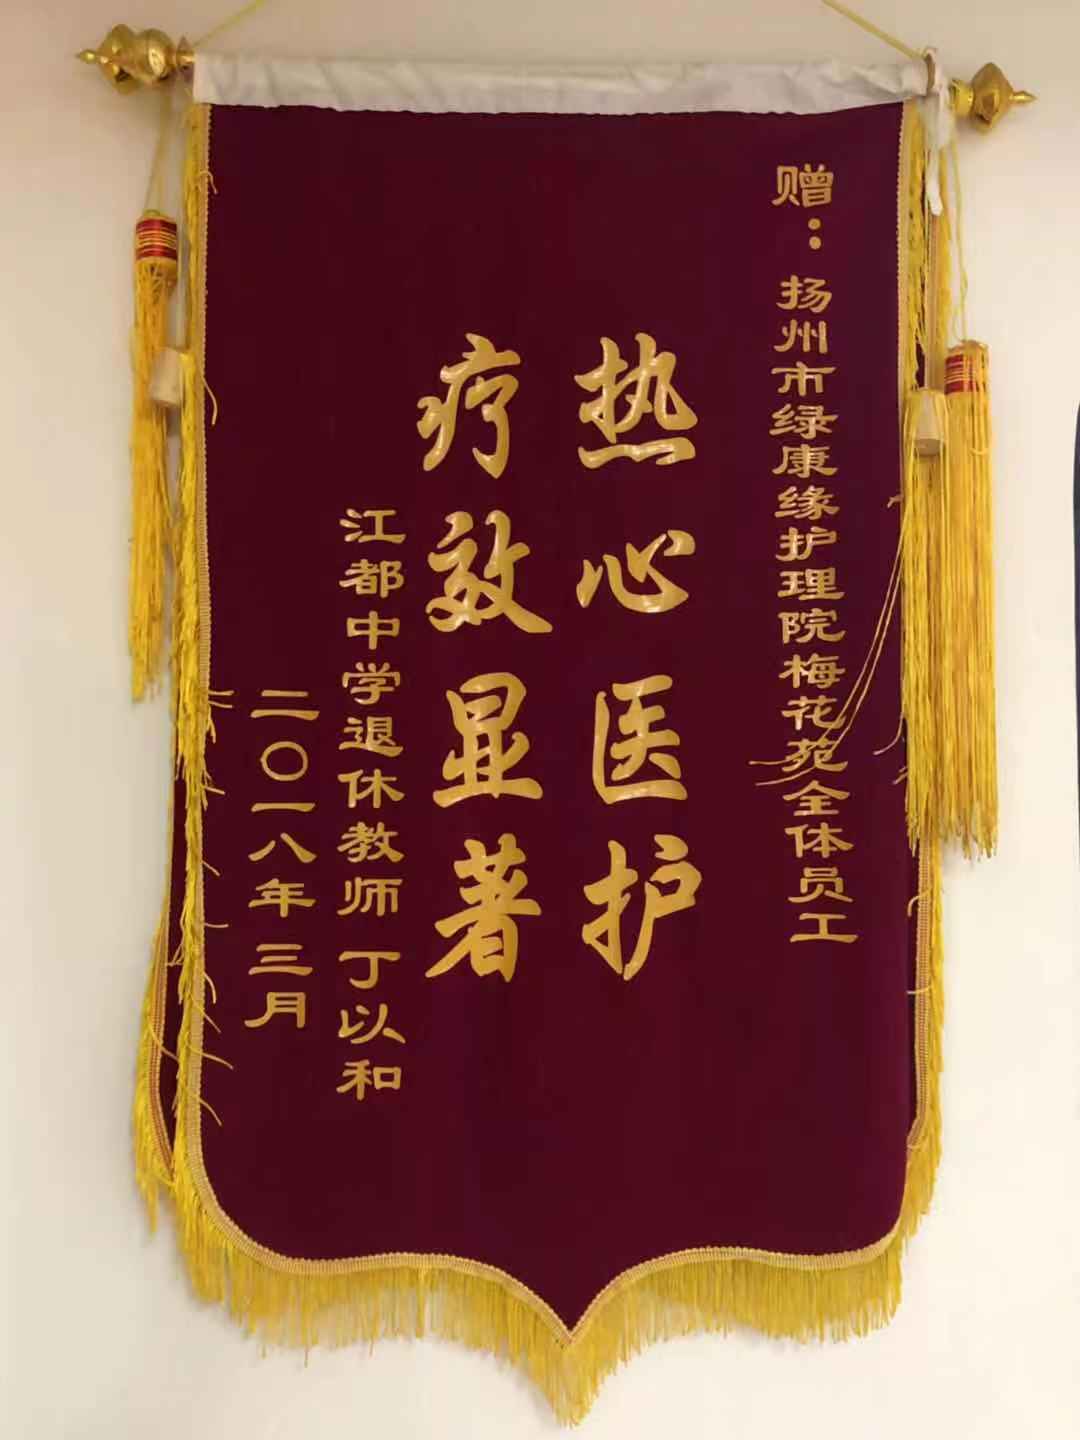 赠：扬州市绿康缘护理院梅花苑全体员工
热心医护
疗效显著
江都中学退休教师 丁以和
二〇一八年三月